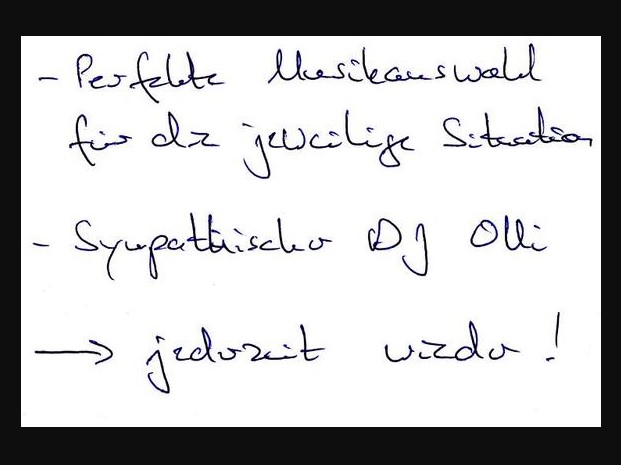 - Perfekte Musikauswahl
für die jeweilige Situation
- Sympathischer DJ Olli
→ jederzeit wieder!